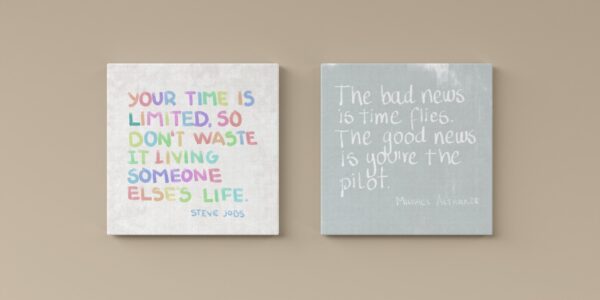 YOUR TIME IS
LIMITED, SO
DON'T WASTE
IT LIVING
SOMEONE
ELSE'S LIFE.
STEVE JOBS
The bad news
is time flies.
The good news
is you're the
pilot.
MICHAEL ALTSHULER